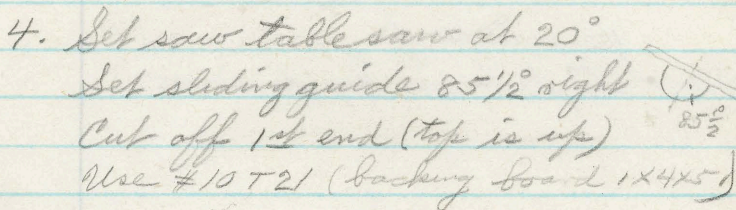 4. Set saw table saw at 20°
Set sliding guide 85 1/2° right
85 1/2°
Cut off 1st end (top is up)
Use #10 T21 (backing board 1x4x5)